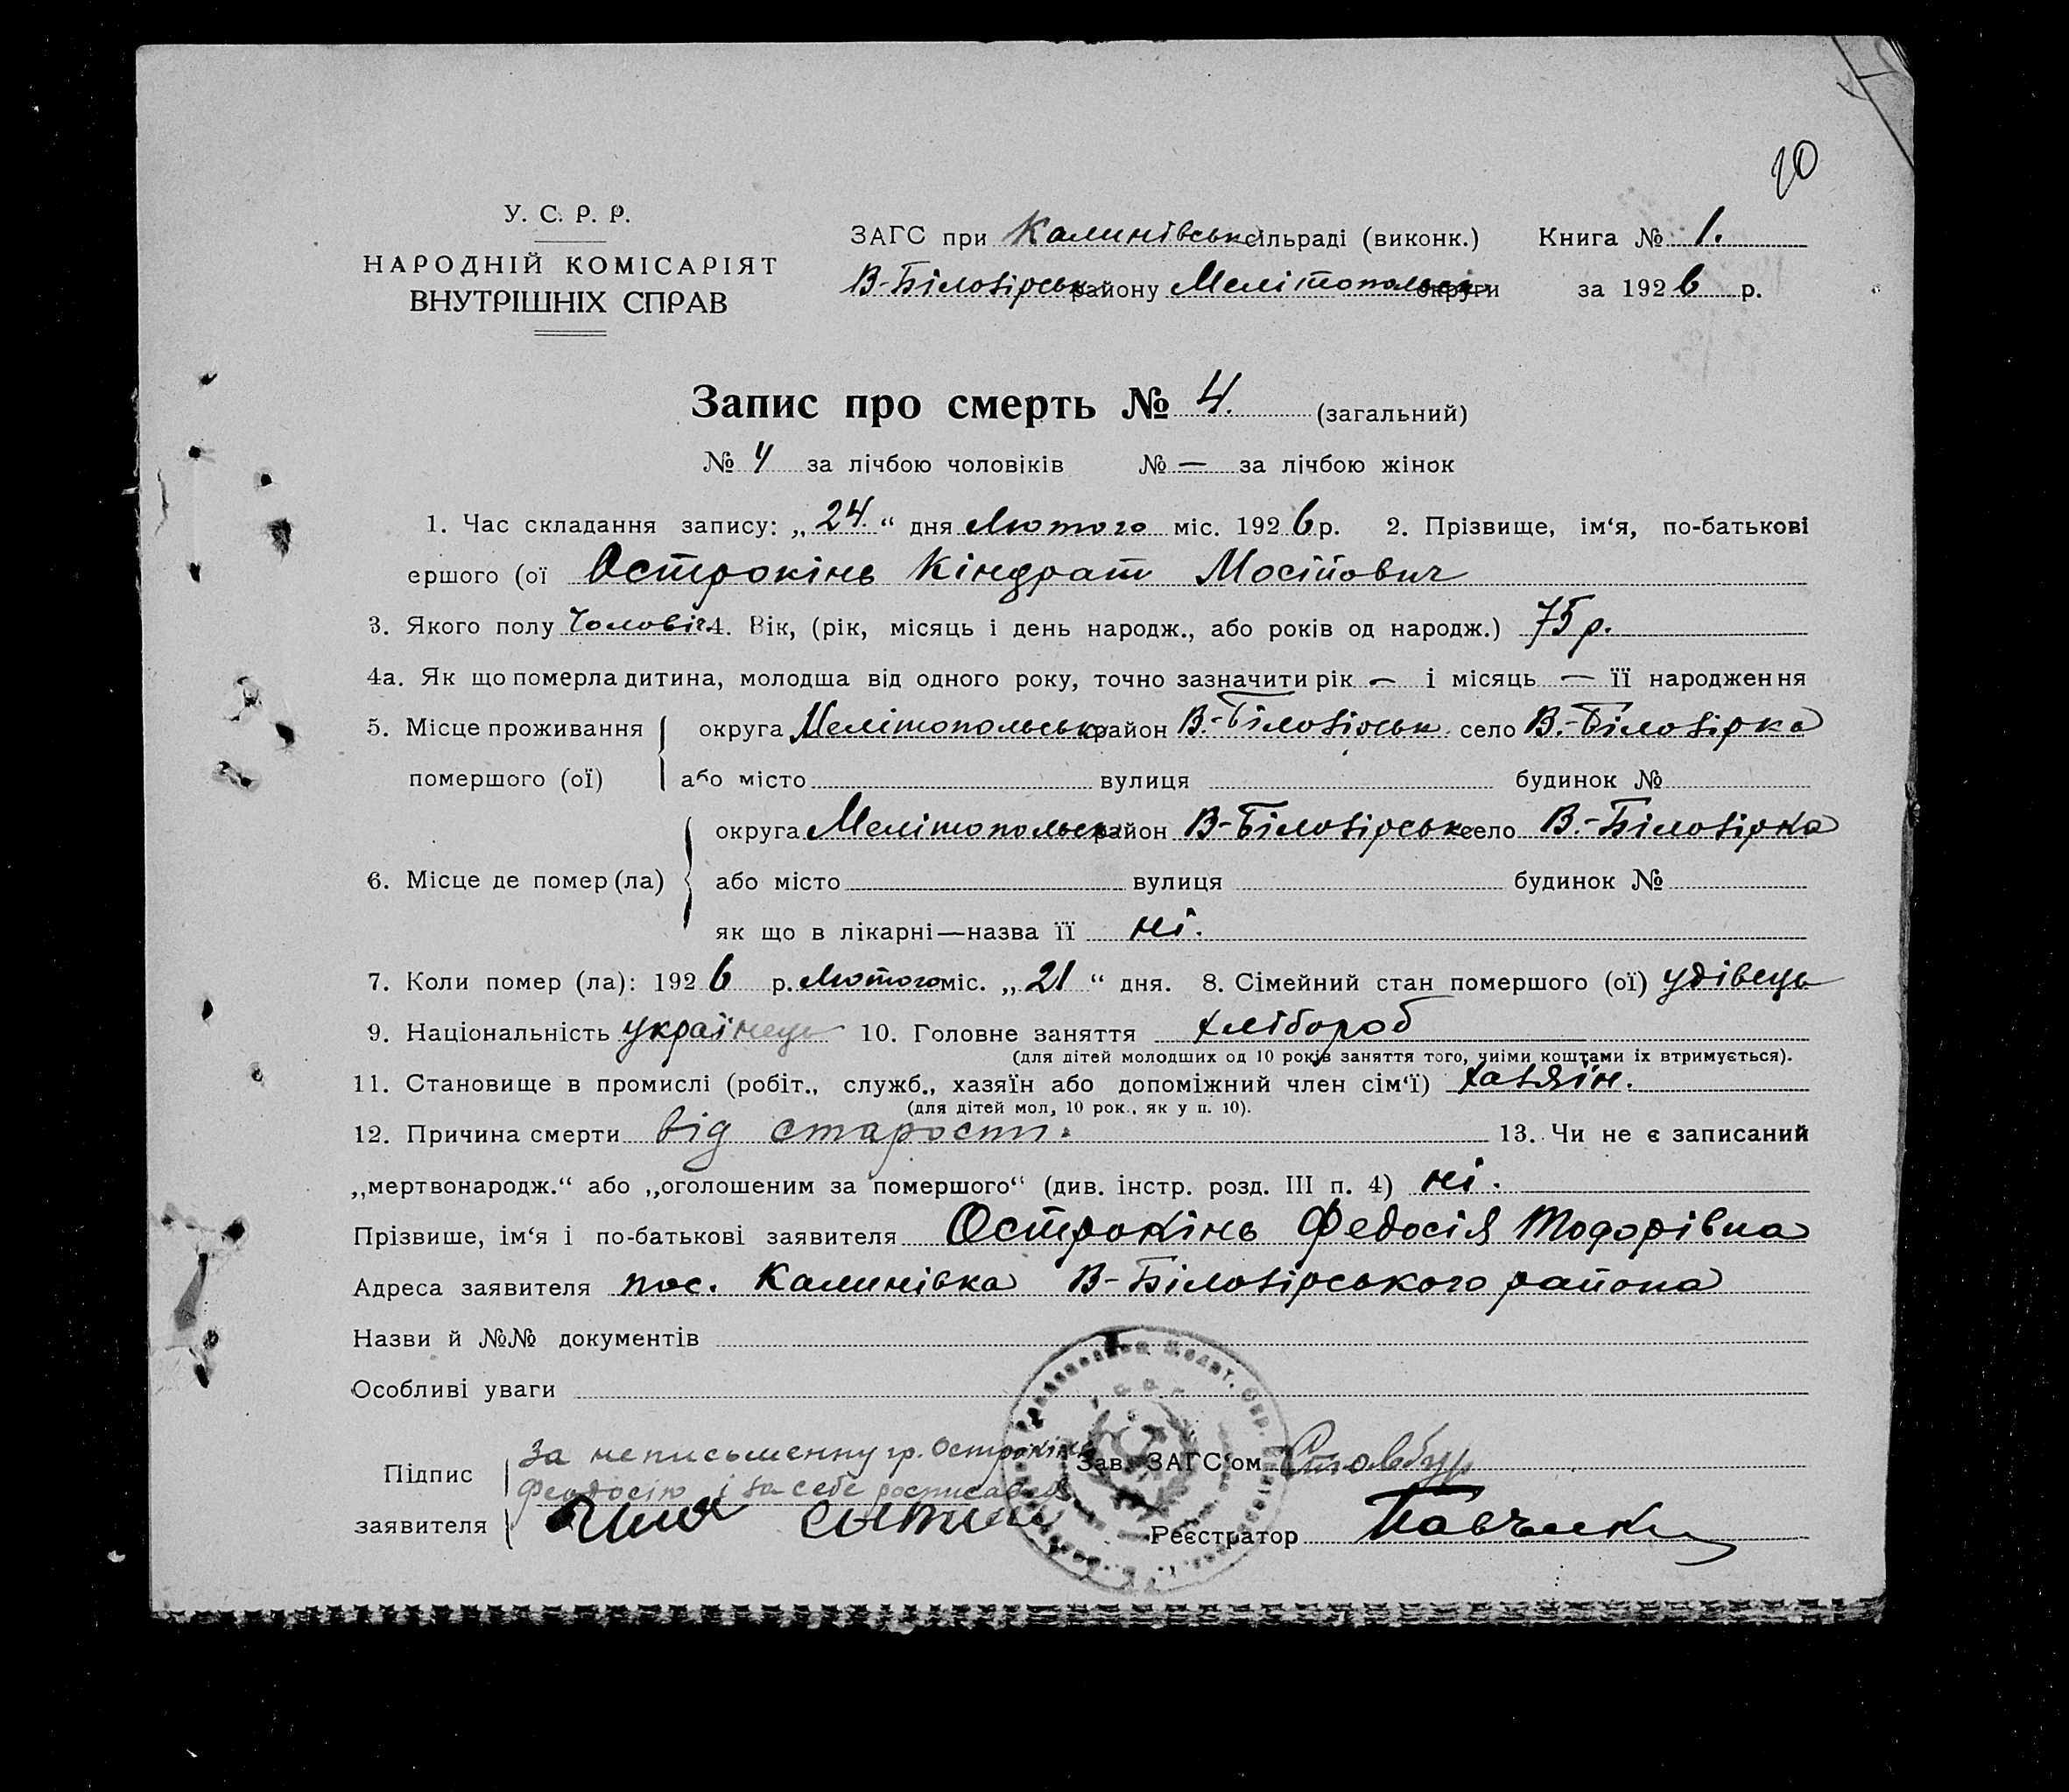 10
У. С. Р. Р.
НАРОДНІЙ КОМІСАРІЯТ
ВНУТРІШНІХ СПРАВ
ЗАГС при Калинівськ сільраді (виконк.) Книга № 1.
В-Білозірськ району Мелітопольськ округи за 1926 р.
Запис про смерть № 4. (загальний)
№ 4 за лічбою чоловіків № — за лічбою жінок
1. Час складання запису: „24.“ дня Лютого міс. 1926 р. 2. Прізвище, ім‘я, по-батькові
ершого (ої Острокінь Кіндрат Мосійович
3. Якого полу Чоловіч 4. Вік, (рік, місяць і день народж., або років од народж.) 75 р.
4а. Як що померла дитина, молодша від одного року, точно зазначити рік — і місяць — її народження
5. Місце проживання округа Мелітопольськ район В.-Білозірськ. село В.-Білозірка
помершого (ої) або місто вулиця будинок №
округа Мелітопольськ район В-Білозірськ село В.-Білозірка
6. Місце де помер (ла) або місто вулиця будинок №
як що в лікарні—назва її ні.
7. Коли помер (ла): 1926 р. Лютого міс. „21“ дня. 8. Сімейний стан помершого (ої) удівець
9. Національність українець 10. Головне заняття хлібороб
(для дітей молодших од 10 років заняття того, чиїми коштами їх втримується).
11. Становище в промислі (робіт., служб., хазяїн або допоміжний член сім‘ї) хазяїн.
(для дітей мол, 10 рок., як у п. 10).
12. Причина смерти від старости. 13. Чи не є записаний
„мертвонародж.“ або „оголошеним за помершого“ (див. інстр. розд. III п. 4) ні.
Прізвише, ім‘я і по-батькові заявителя Острокінь Федосія Тодорівна
Адреса заявителя пос. Калинівка В-Білозірського района
Назви й №№ документів
Особливі уваги
За неписьменну гр. Острокінь
Підпис Зав. ЗАГС‘ом Столбур
Феодосію і за себе росписався
заявителя Реєстратор